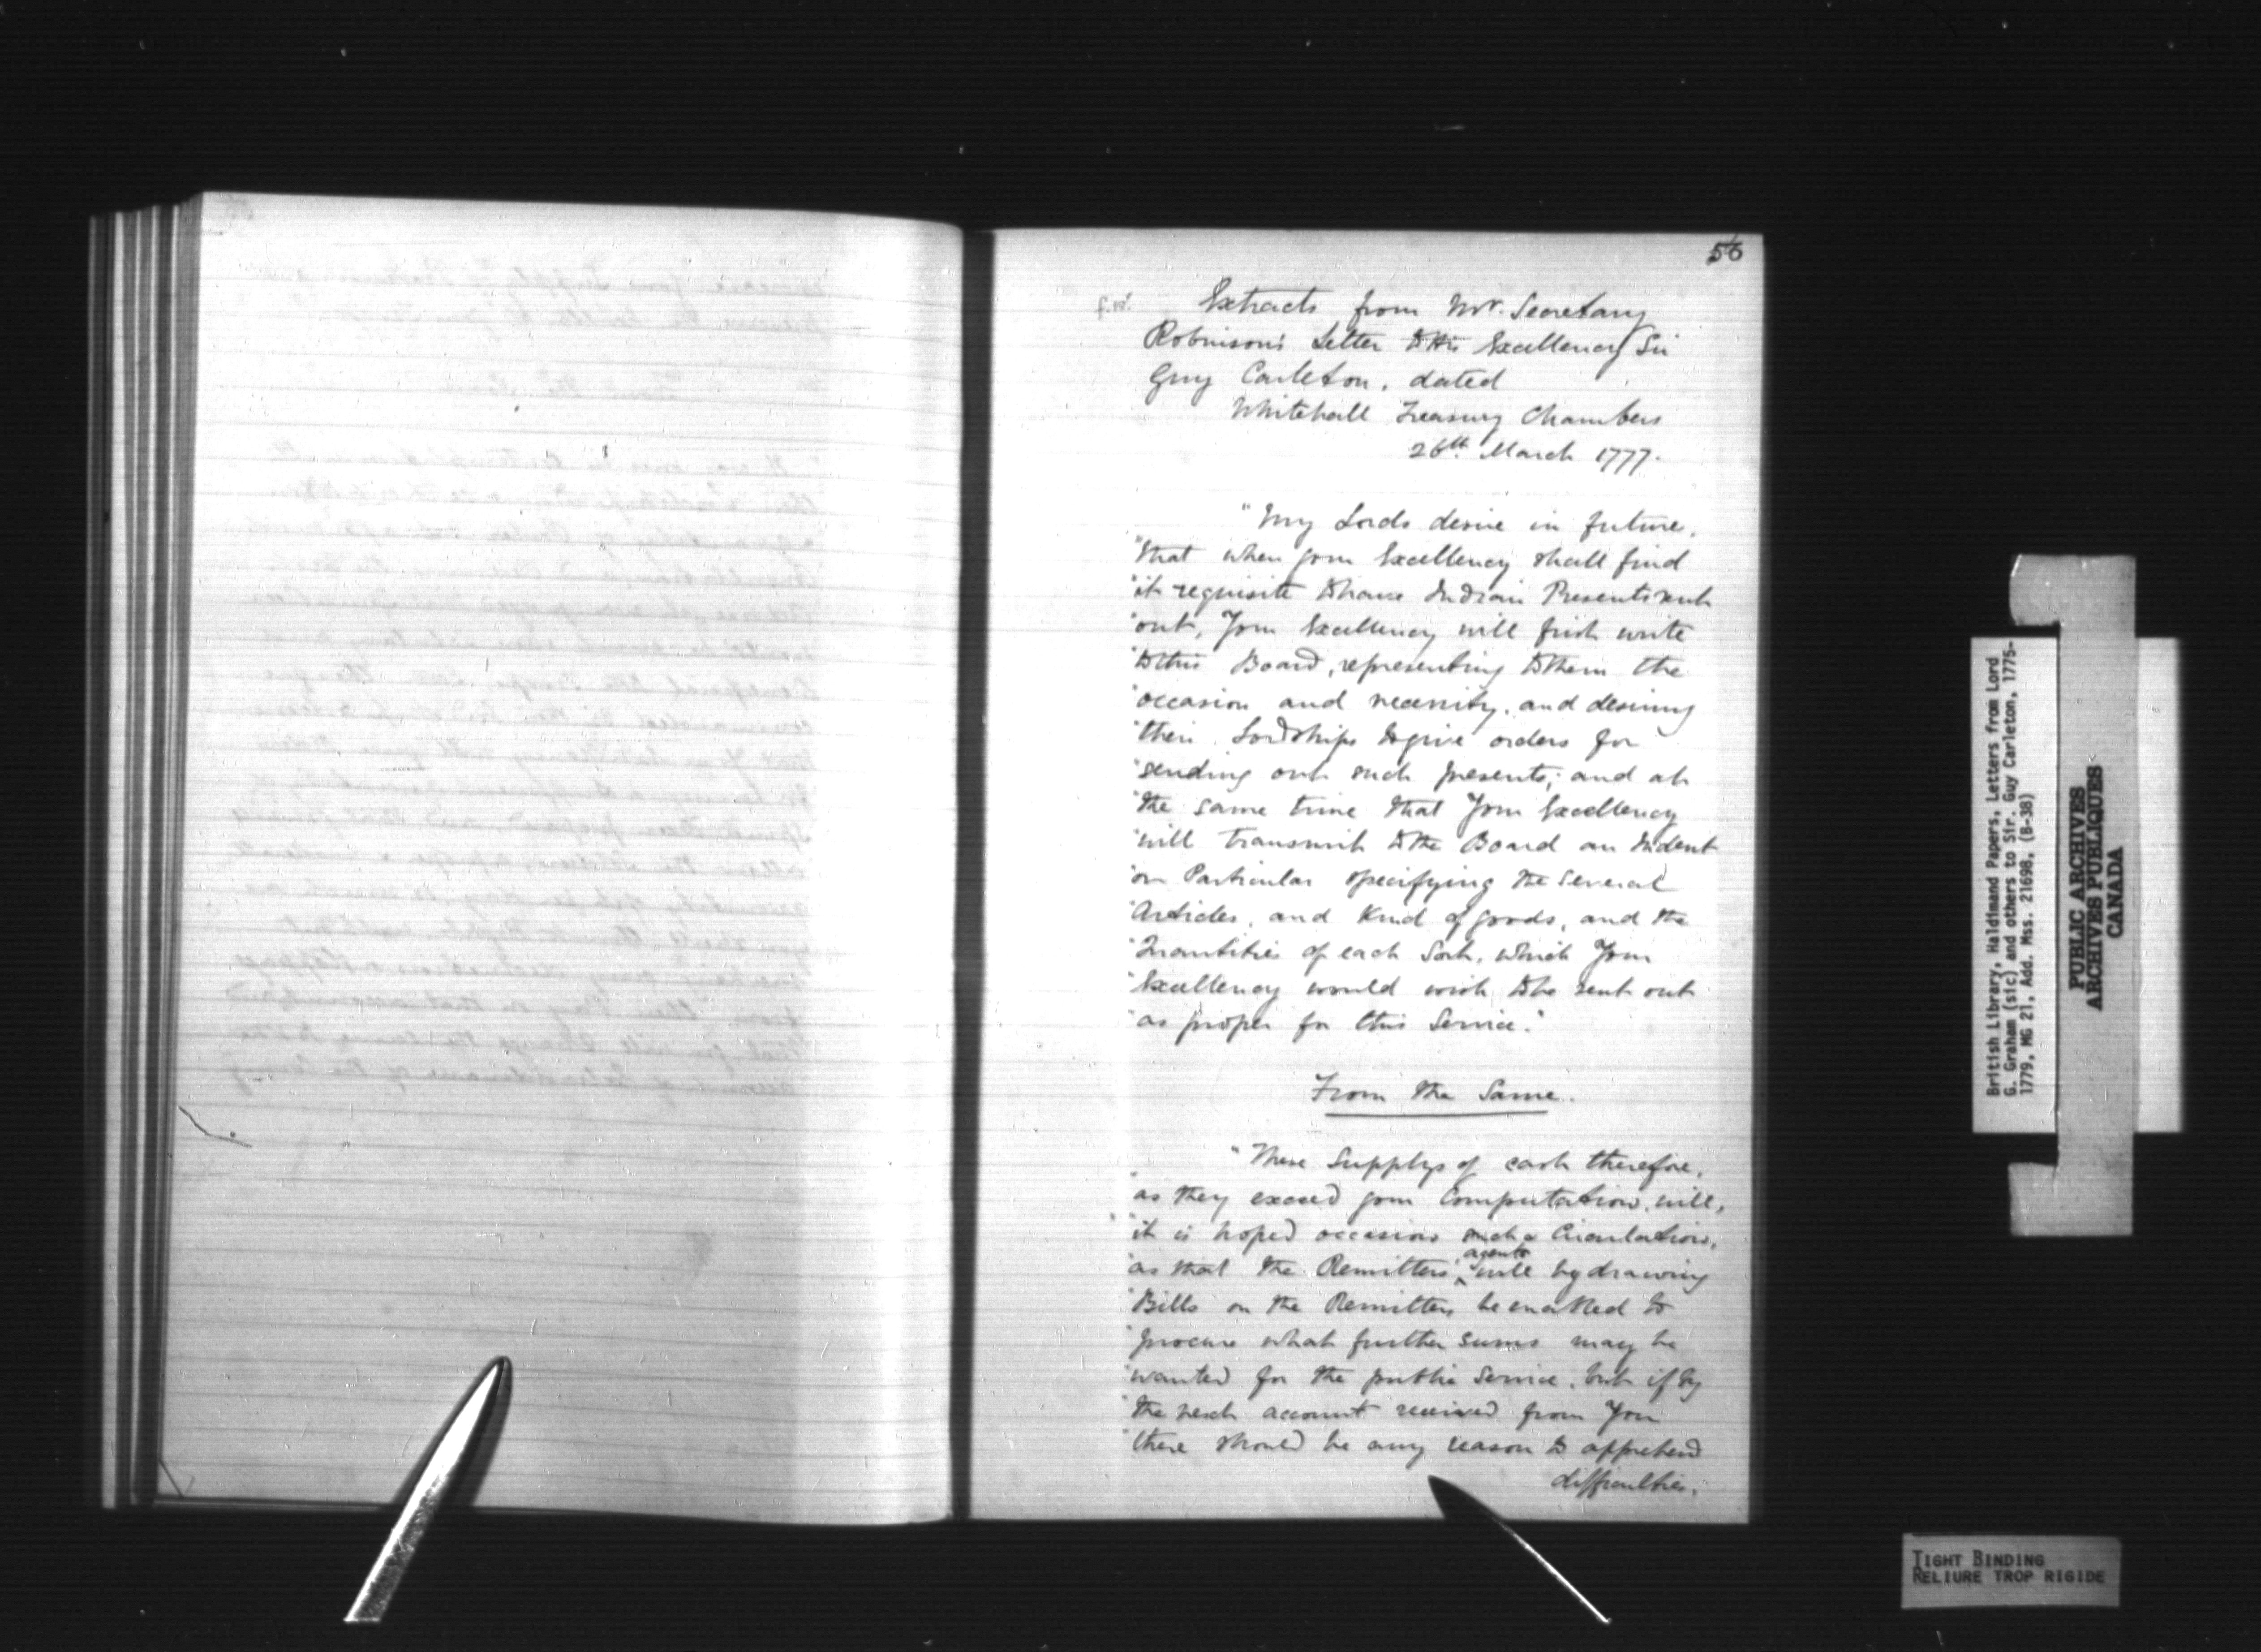 56
f.18.
Extracts from Mr. Secretary
Robinson's Letter to His Excellency Sir
Guy Carleton, dated
Whitehall Treasury Chambers
26th March 1777.
"My Lords desire in future,
"that when your Excellency shall find
"it requisite to have Indian Presents sent
"out, Your Excellency will first write
"to this Board, representing to them the
"occasion and necessity, and desiring
"their Lordships to give orders for
"sending out such presents; and at
"the same time that Your Excellency
"will transmit to the Board an Indent
"or Particular specifying the several
"Articles, and Kind of goods, and the
"Quantities of each Sort, which Your
"Excellency would wish to be sent out
"as proper for this Service."
From the Same.
"These Supplys of cash therefore,
"as they exceed your Computation, will,
"it is hoped occasion such a Circulation,
"as that the Remitters' agents will by drawing
"Bills on the Remitters be enabled to
"procure what further sums may be
"wanted for the public Service, but if by
"the next account received from You
"there should be any reason to apprehend
difficulties,
British Library, Haldimand Papers, Letters from Lord
G. Graham (sic) and others to Sir. Guy Carleton, 1775-
1779, MG 21, Add. Mss. 21698, (B-38)
PUBLIC ARCHIVES
ARCHIVES PUBLIQUES
CANADA
TIGHT BINDING
RELIURE TROP RIGIDE